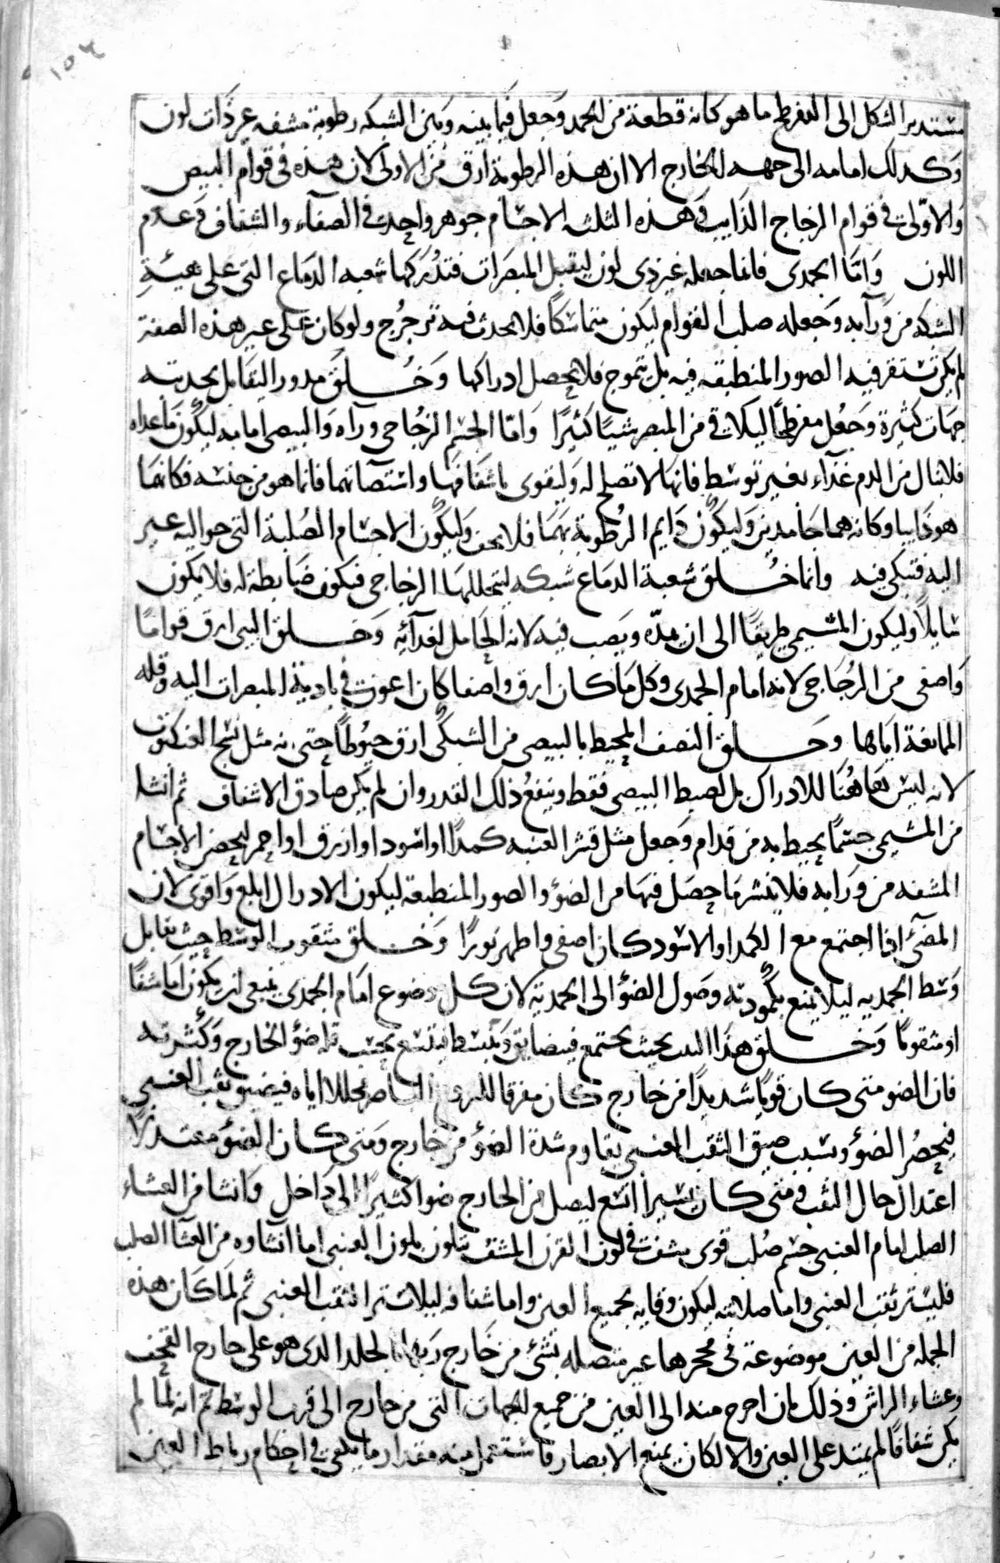 ١٥٦
مستدير الشكل الى التفرطح ما هو كانه قطعة من الجمد وجعل فيما بينه وبين الشبكه رطوبة مشفه غير ذات لون
وكذلك امامه الى جهة الخارج الا ان هذه الرطوبة ارق من الاولى لان هذه في قوام البيض
والاولى في قوام الزجاج الذايب فهذه الثلثه الاجسام جوهر واحد في الصفاء والشفاف وعدم
اللون واما الجمدي فانما جعله غير ذي لون ليقبل المبصرات فتدركها شعبه الدماغ التي على هيئة
الشبكه من ورايه وجعله صلب القوام ليكون متماسكا فلا يحدث فيه ترجرج ولو كان على غير هذه الصفة
لم يكن تستقر فيه الصور المنطبقه فيه بل تتموج فلا يحصل ادراكها وخلق مدورا ليقابل بحدبته
جهات كثيرة وجعل مفرطحا ليلاقي من المبصر شيئا كثيرا واما الجسم الزجاجي وراه والبيضي امامه ليكون ما غذاه
فلا ينال من الدم غذاء بغير توسط فانها لا تصلح له وليقوى باشفافها واستضائتها فانما هو من جنسه فكانما
هو ذايبا وكانهما جامدين وليكون دايم الرطوبة بهما فلا يجف وليكون الاجسام الصلبة التي حواليه غير
اليه فتنكى فيه وانما خلق شعبة الدماغ شبكه ليتخللها الزجاجي فيكون ضابطة له فلا يكون
سايلا وليكون المشيمي طريقا الى ان يمده ويصب فيه لانه الحامل لغذائه وخلق البيضي ارق قواما
واصفى من الزجاجي لانه امام الجمدي وكل ما كان ارق واصفا كان اعون في تادية المبصرات اليه وقله
الممانعة اياها وخلق النصف المحيط بالبيضي من الشبكي ارق خيوطا حتى انه مثل نسج العنكبوت
لانه ليس هاهنا للادراك بل لضبط البيضي فقط وينفع ذلك القدر وان لم يكن صادق الاشفاف ثم انشا
من المشيمي جسما يحيط به من قدام وجعل مثل قشر العنبه كمدا او اسود او ازرق او احمر ليحصر الاجسام
المشفه من ورايه فلا ينشر ما حصل فيها من الضوء والصور المنطبقه ليكون الادراك ابلغ واقوى لان
المضئ اذا اجتمع مع الكمد او الاسود كان اصفى واظهر نورا وخلق مثقوب الوسط حيث يقابل
وسط الجمديه ليلا يمنع بكمودته وصول الضوء الى الجمديه لان كل موضوع امام الجمدي ينبغي ان يكون اما شفا
او مثقوبا وخلق هذا الثقب بحيث يجتمع فيضايق وينبسط فيتسع بحسب قله ضوء الخارج وكثرته
فان الضوء متى كان قويا شديدا من خارج كان مفرقا للروح الباصر محللا اياه فيضيق ثقب العنبي
فيحصر الضوء وبسبب ضيق الثقب العنبي يقاوم شدة الضوء من خارج ومتى كان الضوء معتدلا
اعتدال حال الثقب ومتى كان يسيرا اتسع ليصل من الخارج ضوا كثيرا الى داخل وانشا من الغشاء
الصلب امام العنبي جسم صلب قوي مشف في لون القرن المشف يتلون بلون العنبي اما انشاوه من الغشا الصلب
فليستر ثقب العنبي واما صلابته ليكون وقايه بجميع العين واما شفافه ليلا يستر ثقب العنبي ثم لما كان هذه
الجمله من العين موضوعة في محجرها غير متصله بشئ من خارج ربطها بالجلد الذي هو على خارج القحف
وغشاء الراس وذلك بان اخرج منه الى العين من جميع الجهات التي من خارج الى قرب الوسط ثم انه لما لم
يكن شفافا لم يمتد على العين والا لكان يمنع الابصار فاستعمل منه مقدار ما يكفي في احكام رباط العين